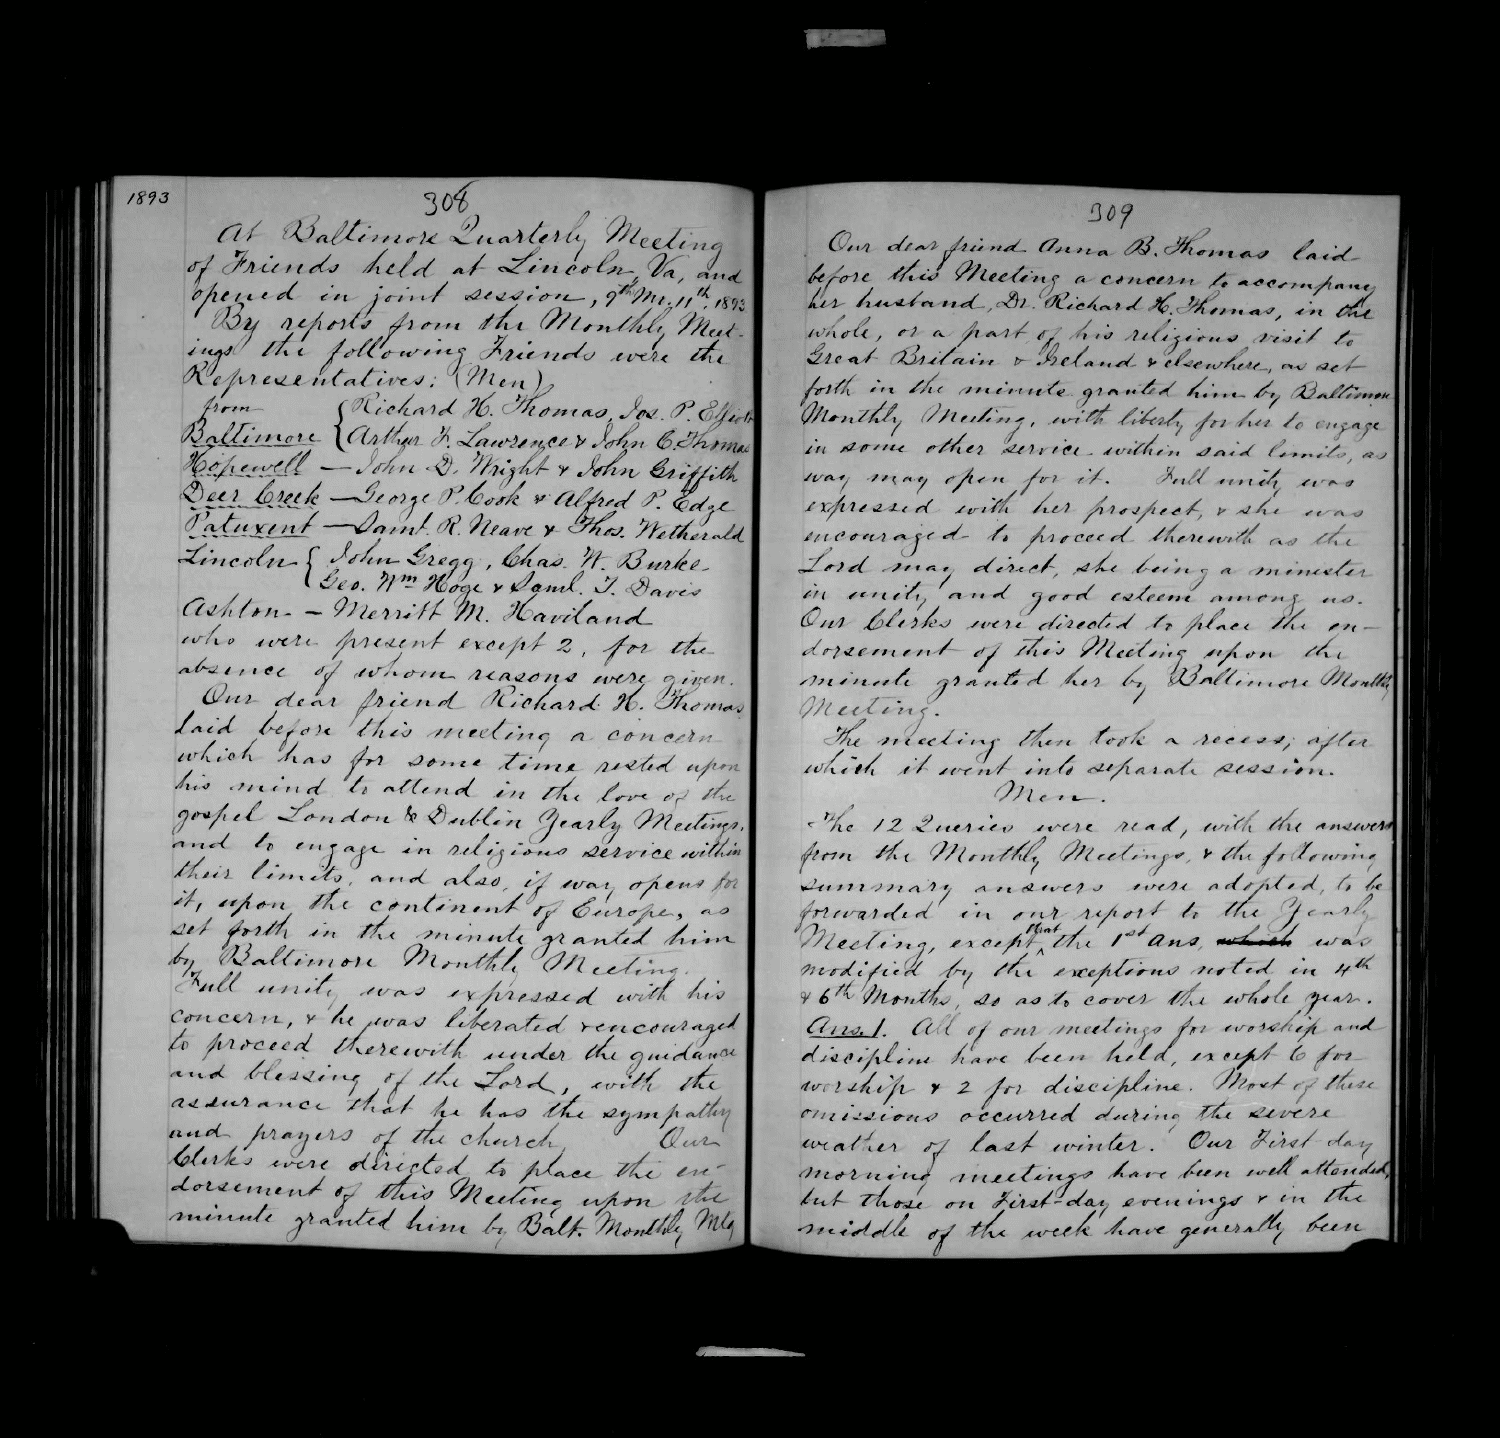 1893
308
At Baltimore Quarterly Meeting
of Friends held at Lincoln, Va, and
opened in joint session, 9th Mo. 11th, 1893
By reports from the Monthly Meet-
ings the following Friends were the
Representatives: (Men)
from { Richard H. Thomas, Jos. P. Elliott
Baltimore { Arthur F. Lawrence & John C. Thomas
Hopewell — John D. Wright & John Griffith
Deer Creek — George P. Cook & Alfred P. Edge
Patuxent — Saml. R. Neave & Thos. Wetherald
Lincoln { John Gregg, Chas. W. Burke
Geo. Wm Hoge & Saml. T. Davis
Ashton — Merritt M. Haviland
who were present except 2, for the
absence of whom reasons were given.
Our dear friend Richard H. Thomas
laid before this meeting a concern
which has for some time rested upon
his mind to attend in the love of the
gospel London & Dublin Yearly Meetings,
and to engage in religious service within
their limits, and also, if way opens for
it, upon the continent of Europe, as
set forth in the minute granted him
by Baltimore Monthly Meeting.
Full unity was expressed with his
concern, & he was liberated & encouraged
to proceed therewith under the guidance
and blessing of the Lord, with the
assurance that he has the sympathy
and prayers of the church Our
Clerks were directed to place the en-
dorsement of this Meeting upon the
minute granted him by Balt. Monthly Mtg
309
Our dear friend Anna B. Thomas laid
before this Meeting a concern to accompany
her husband, Dr. Richard H. Thomas, in the
whole, or a part of his religious visit to
Great Britain & Ireland & elsewhere, as set
forth in the minute granted him by Baltimore
Monthly Meeting, with liberty for her to engage
in some other service within said limits, as
way may open for it. Full unity was
expressed with her prospect, & she was
encouraged to proceed therewith as the
Lord may direct, she being a minister
in unity and good esteem among us.
Our Clerks were directed to place the en-
dorsement of this Meeting upon the
minute granted her by Baltimore Monthly
Meeting.
The meeting then took a recess; after
which it went into separate session.
Men.
The 12 Queries were read, with the answers
from the Monthly Meetings, & the following
summary answers were adopted, to be
forwarded in our report to the Yearly
Meeting, except that the 1st Ans, which was
modified by the exceptions noted in 4th
& 6th Months, so as to cover the whole year.
Ans. 1. All of our meetings for worship and
discipline have been held, except 6 for
worship & 2 for discipline. Most of these
omissions occurred during the severe
weather of last winter. Our First-day
morning meetings have been well attended,
but those on First-day evenings & in the
middle of the week have generally been